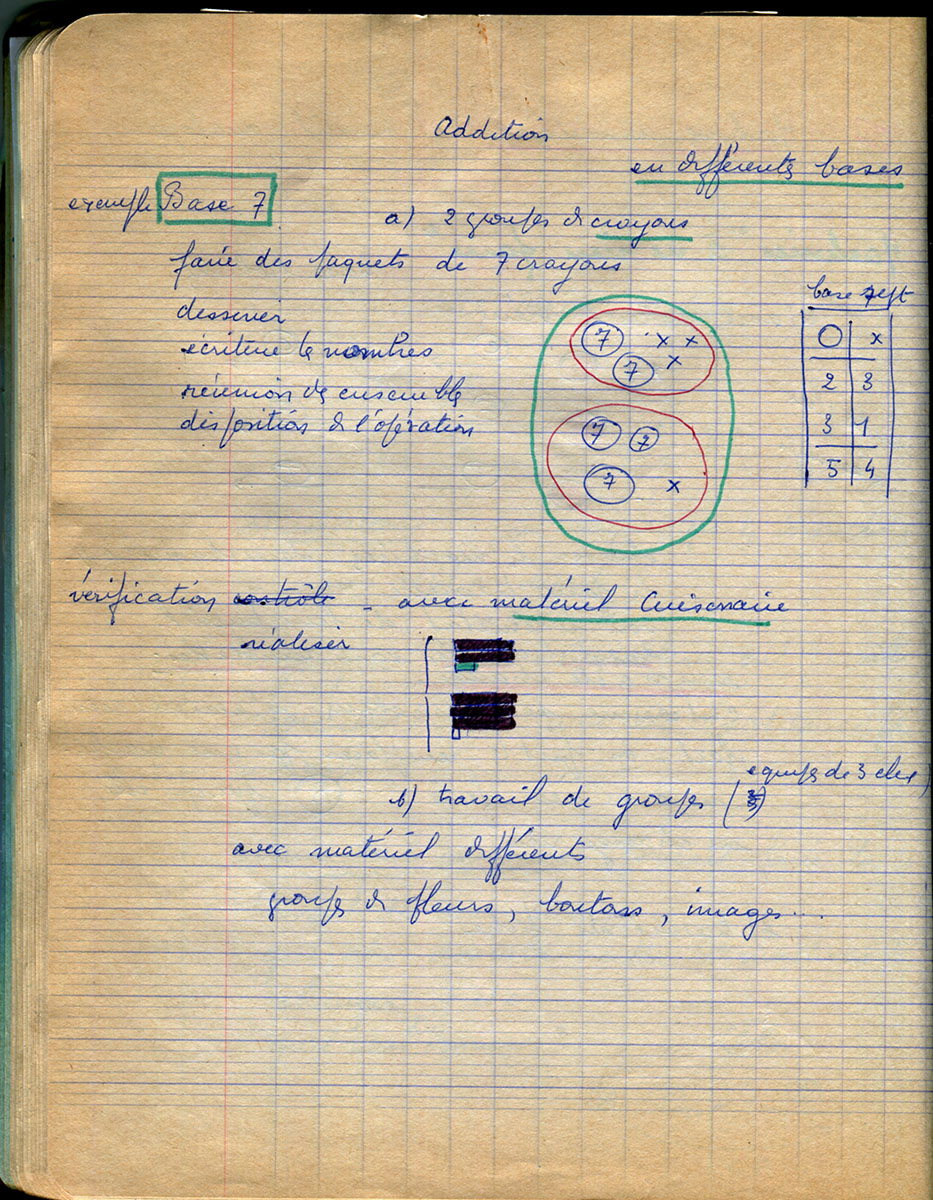 Addition
en différents bases
exemple Base 7
a) 2 groupes de crayons
faire des paquets de 7 crayons
dessiner
écriture de nombres
réunion de ensemble
disposition de l'opération
7 x x
7 x
7 7
7 x
base sept
O x
2 3
3 1
5 4
vérification contrôle - avec matériel Cuisenaire
réaliser
b) travail de groupes (
equipes de 3 élev )
avec matériel différents
groupes de fleurs, boutons, images...